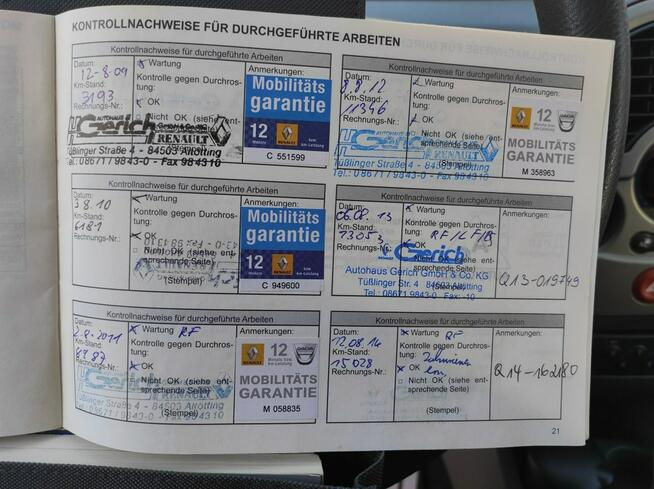 KONTROLLNACHWEISE FÜR DURCHGEFÜHRTE ARBEITEN
Kontrollnachweise für durchgeführte Arbeiten
Datum: 12-8-09
Km-Stand: 3193
Rechnungs-Nr.:
Wartung
Kontrolle gegen Durchros-
tung:
OK
Nicht OK (siehe ent-
Anmerkungen:
Mobilitäts
garantie
12
Monate
RENAULT
C 551599
AUTOHAUS
Gerich
GmbH & Co. KG
RENAULT
Tüßlinger Straße 4 - 84503 Altötting
Tel. 08671/9843-0 - Fax 984310
Kontrollnachweise für durchgeführte Arbeiten
Datum: 3.8.10
Km-Stand: 6181
Rechnungs-Nr.:
Wartung
Kontrolle gegen Durchros-
tung:
OK
Nicht OK (siehe ent-
sprechende Seite)
(Stempel)
Anmerkungen:
Mobilitäts
garantie
12
C 949600
Kontrollnachweise für durchgeführte Arbeiten
Datum: 2-8-2011
Km-Stand:
Rechnungs-Nr.:
Wartung RF
Kontrolle gegen Durchros-
tung:
OK
Nicht OK (siehe ent-
sprechende Seite)
(Stempel)
Anmerkungen:
RENAULT
12
DACIA
MOBILITÄTS
GARANTIE
M 058835
Gerich
RENAULT
Tüßlinger Straße 4 - 84503 Altötting
Tel. 08671/9843-0 - Fax 984310
Kontrollnachweise für durchgeführte Arbeiten
Datum: 8.8.12
Km-Stand: 11346
Rechnungs-Nr.:
Wartung
Kontrolle gegen Durchros-
tung:
OK
Nicht OK (siehe ent-
sprechende Seite)
Anmerkungen:
12
MOBILITÄTS
GARANTIE
M 358963
RENAULT
Tüßlinger Straße 4 - 84503 Altötting
Tel. 08671/9843-0 - Fax 984310
Kontrollnachweise für durchgeführte Arbeiten
Datum: 06.08.13
Km-Stand: 13053
Rechnungs-Nr.:
Wartung
Kontrolle gegen Durchros-
tung:
OK
Nicht OK (siehe ent-
sprechende Seite)
(Stempel)
Anmerkungen:
Q13-019749
Gerich
Autohaus Gerich GmbH & Co. KG
Tüßlinger Str. 4 84503 Altötting
Tel.: 08671 9843-0 Fax: -10
Kontrollnachweise für durchgeführte Arbeiten
Datum: 12.08.14
Km-Stand: 15028
Rechnungs-Nr.:
Wartung RF
Kontrolle gegen Durchros-
tung:
OK
Nicht OK (siehe ent-
sprechende Seite)
(Stempel)
Anmerkungen:
Q14-162180
21